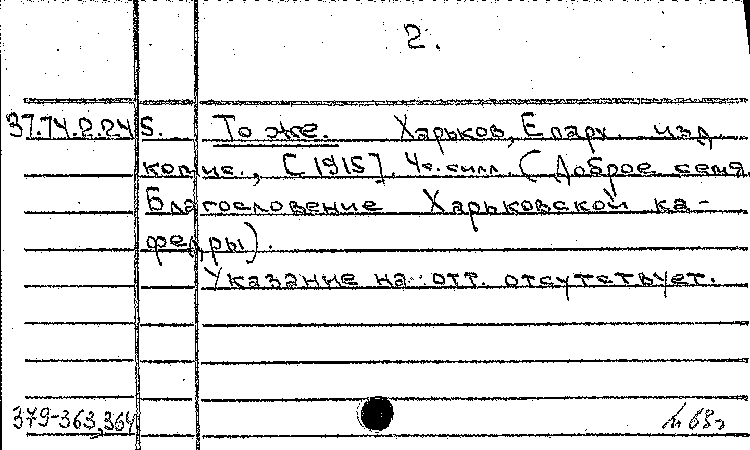 2.
37.74.2.245. То же. Харьков, Епарх. изд.
копис., [1915]. 4с. силл. (Доброе семя.
Благословение Харьковской ка-
федры).
Указание на отт. отсутствует.
379-363,364